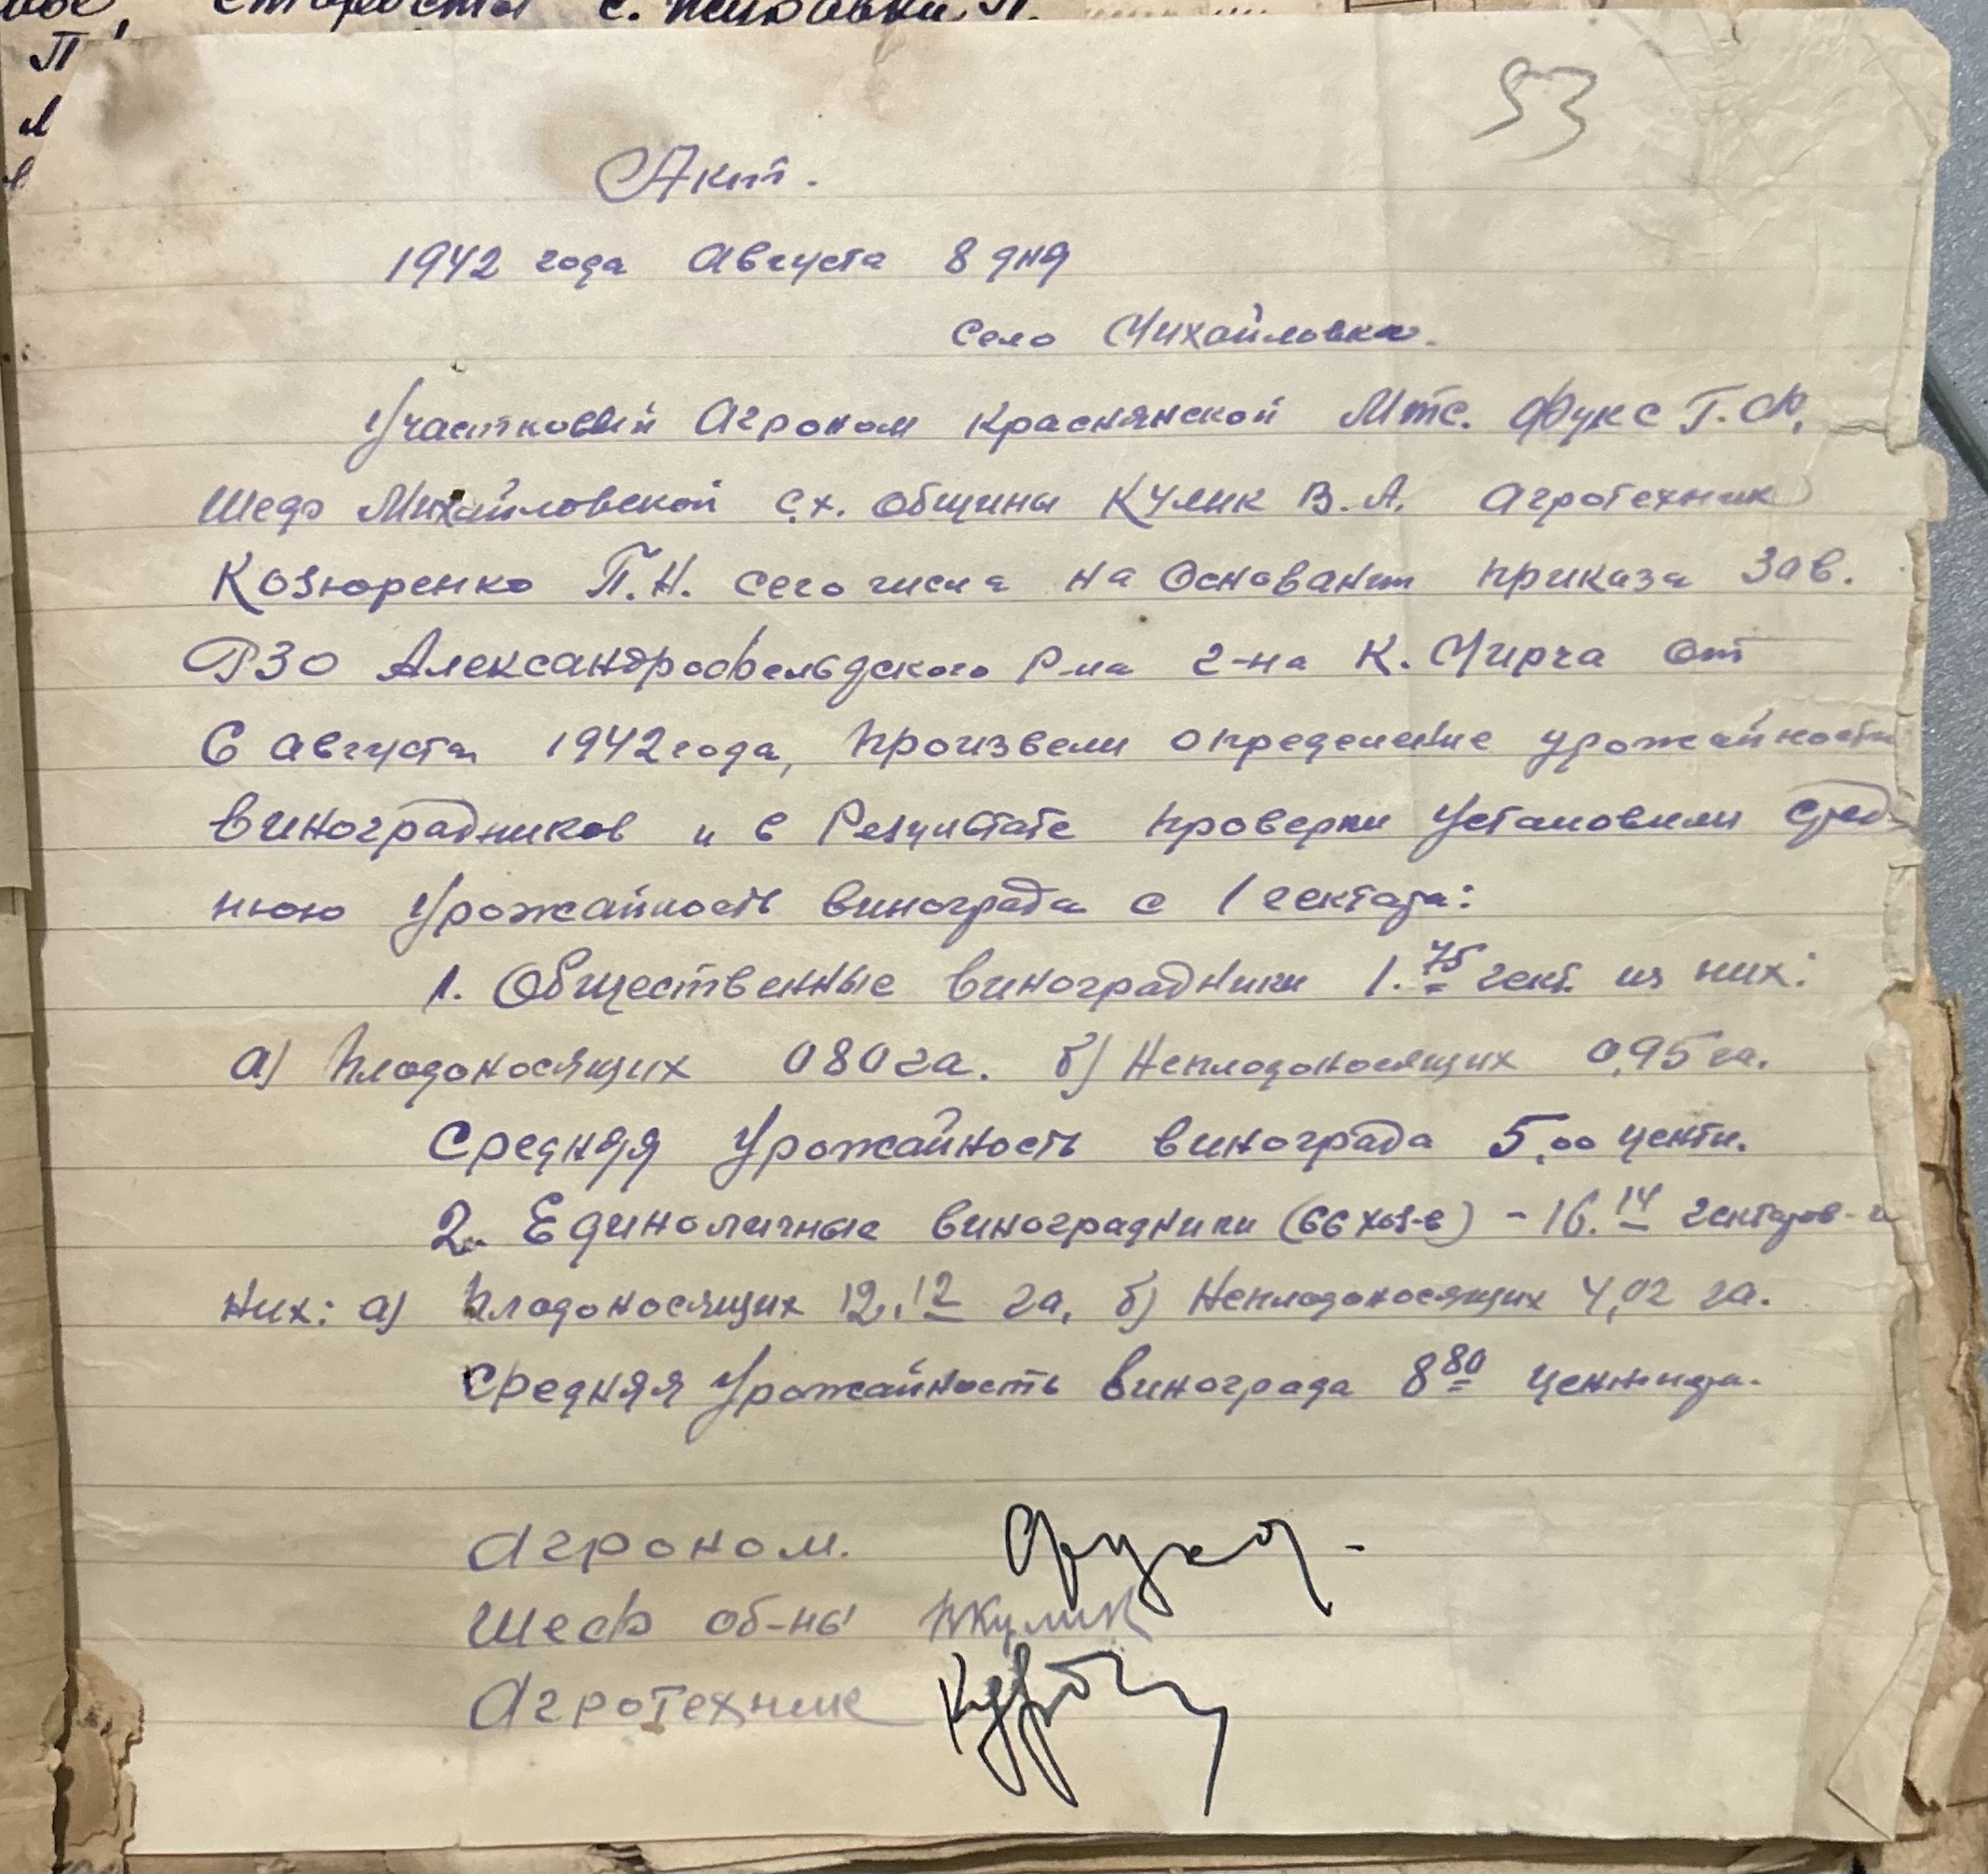 старосты с.
П
л
в
53
Акт.
1942 года Августа 8 дня
Село Михайловка.
Участковый Агроном Краснянской Мтс. Фукс Г.Ф.
Шеф Михайловской с.х. общины Кулик В.А. Агротехник
Козюренко П.Н. сего числа на Основании приказа Зав.
РЗО Александрофельдского Р-на 2-на К. Мирча От
6 августа 1942 года, произвели определение урожайности
виноградников и в Результате проверки Установили сред-
нюю Урожайность винограда с 1 гектара:
1. Общественные виноградники 1.75 гект. из них:
а) плодоносящих 080 га. б) Неплодоносящих 0,95 га.
Средняя Урожайность винограда 5,00 центн.
2. Единоличные виноградники (66 хоз-в) - 16.14 гектаров - и
них: а) плодоносящих 12.12 га, б) Неплодоносящих 4,02 га.
Средняя Урожайность винограда 8 80 центнера.
Агроном. Фукс
Шеф об-ны Кулик
Агротехник